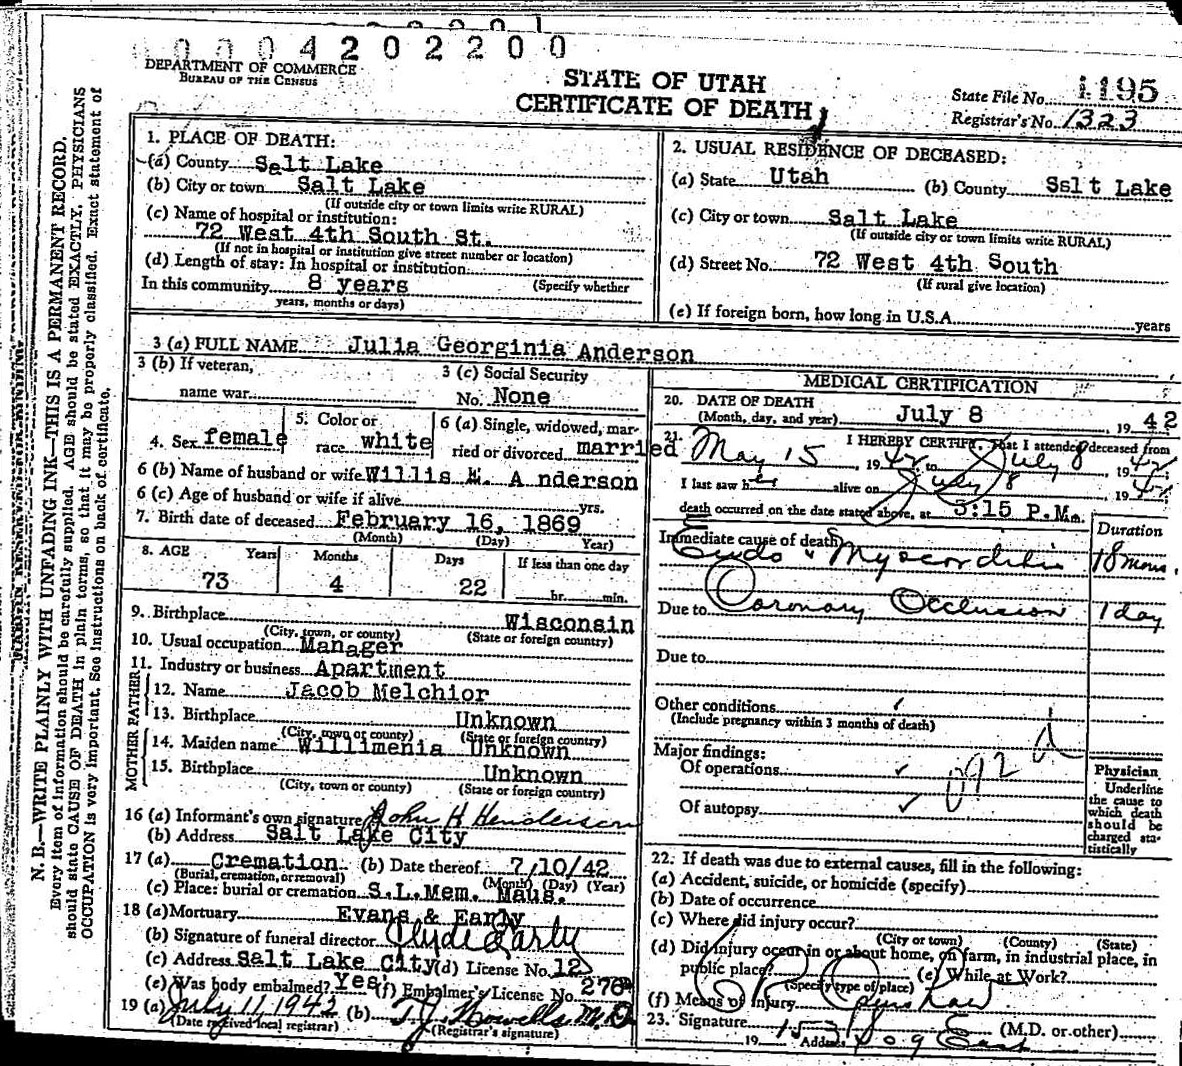 00004202200
DEPARTMENT OF COMMERCE
BUREAU OF THE CENSUS
STATE OF UTAH
CERTIFICATE OF DEATH
State File No. 1195
Registrar's No. 1323
N. B.—WRITE PLAINLY WITH UNFADING INK—THIS IS A PERMANENT RECORD.
Every item of information should be carefully supplied. AGE should be stated EXACTLY. PHYSICIANS
should state CAUSE OF DEATH in plain terms, so that it may be properly classified. Exact statement of
OCCUPATION is very important. See instructions on back of certificate.
1. PLACE OF DEATH:
(a) County Salt Lake
(b) City or town Salt Lake
(If outside city or town limits write RURAL)
(c) Name of hospital or institution:
72 West 4th South St.
(If not in hospital or institution give street number or location)
(d) Length of stay: In hospital or institution
In this community 8 years (Specify whether
years, months or days)
2. USUAL RESIDENCE OF DECEASED:
(a) State Utah (b) County Salt Lake
(c) City or town Salt Lake
(If outside city or town limits write RURAL)
(d) Street No. 72 West 4th South
(If rural give location)
(e) If foreign born, how long in U.S.A. years
3 (a) FULL NAME Julia Georginia Anderson
3 (b) If veteran,
name war
3 (c) Social Security
No. None
4. Sex female
5. Color or
race white
6 (a) Single, widowed, mar-
ried or divorced married
6 (b) Name of husband or wife Willis E. A nderson
6 (c) Age of husband or wife if alive yrs.
7. Birth date of deceased February 16, 1869
(Month) (Day) Year)
8. AGE Years Months Days If less than one day
73 4 22 hr. min.
9. Birthplace Wisconsin
(City, town, or county) (State or foreign country)
10. Usual occupation Manager
11. Industry or business Apartment
FATHER
12. Name Jacob Melchior
13. Birthplace Unknown
(City, town or county) (State or foreign country)
MOTHER
14. Maiden name Willimenia Unknown
15. Birthplace Unknown
(City, town or county) (State or foreign country)
16 (a) Informant's own signature John H Henderson
(b) Address Salt Lake City
17 (a) Cremation (b) Date thereof 7/10/42
(Burial, cremation, or removal) (Month) (Day) (Year)
(c) Place: burial or cremation S.L.Mem. Maus.
18 (a) Mortuary Evans & Early
(b) Signature of funeral director Clyde Early
(c) Address Salt Lake City (d) License No. 12
(e) Was body embalmed? Yes (f) Embalmer's License No. 276
19 (a) July 11, 1942 (b) T.J. Howells M.D.
(Date received local registrar) (Registrar's signature)
MEDICAL CERTIFICATION
20. DATE OF DEATH
(Month, day, and year) July 8 1942
21. I HEREBY CERTIFY, That I attended deceased from
May 15, 1942 to July 8, 1942
I last saw her alive on July 8, 1942
death occurred on the date stated above, at 5:15 P.M.
Immediate cause of death Duration
Endo " Myocarditis 18 mons.
Due to Coronary Occlusion 1 day
Due to
Other conditions
(Include pregnancy within 3 months of death)
Major findings:
Of operations
Of autopsy
092 d
Physician
Underline
the cause to
which death
should be
charged sta-
tistically
22. If death was due to external causes, fill in the following:
(a) Accident, suicide, or homicide (specify)
(b) Date of occurrence
(c) Where did injury occur?
(City or town) (County) (State)
(d) Did injury occur in or about home, on farm, in industrial place, in
public place? (e) While at Work?
(Specify type of place)
(f) Means of Injury
23. Signature (M.D. or other)
19 Address East